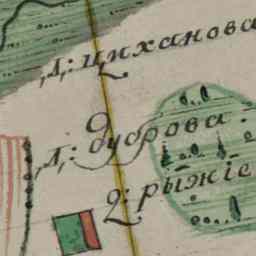 д: циханова
д: дуброва.
2: рыжіе